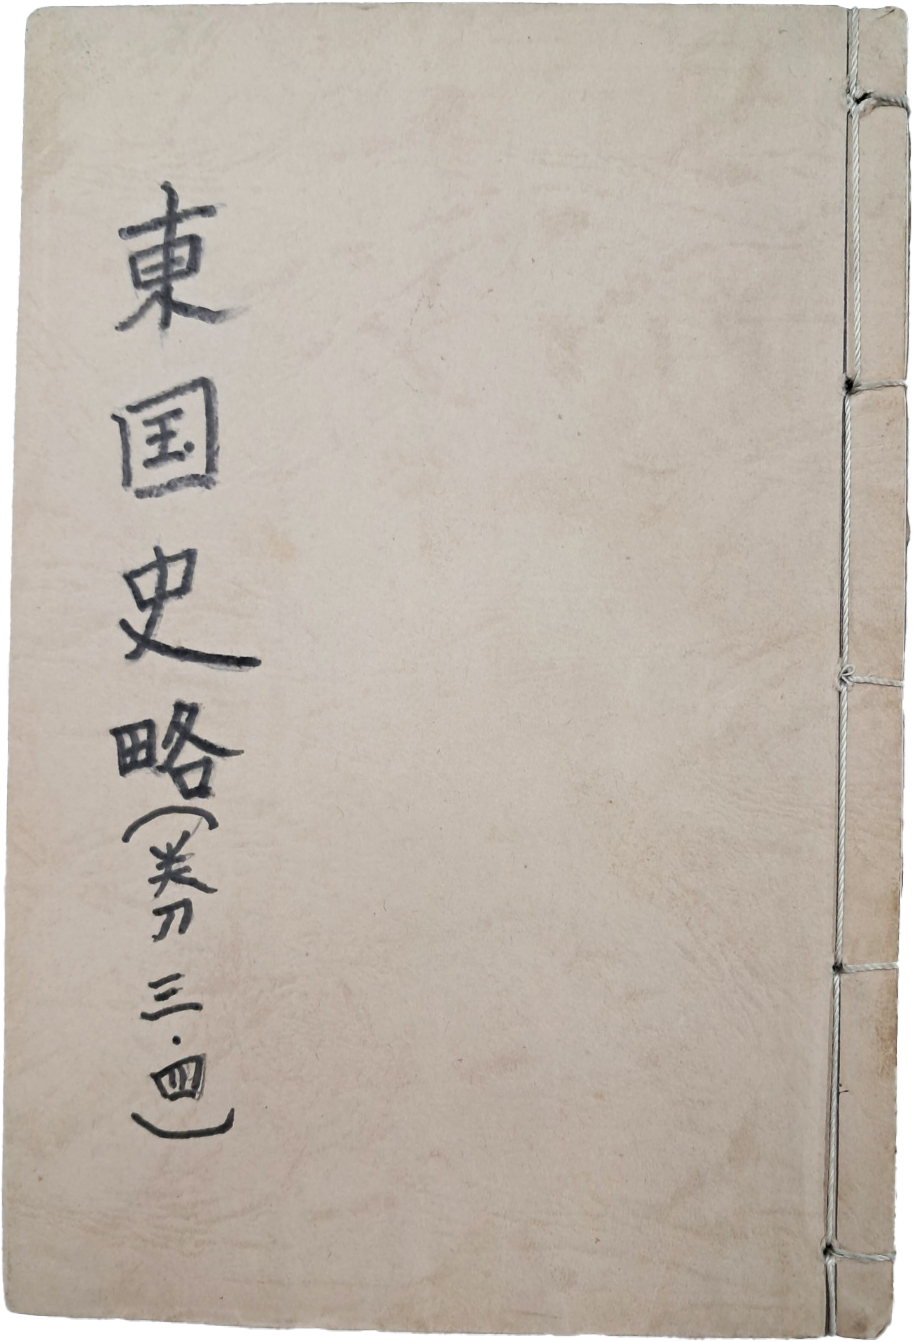 東国史略(券 三·四)